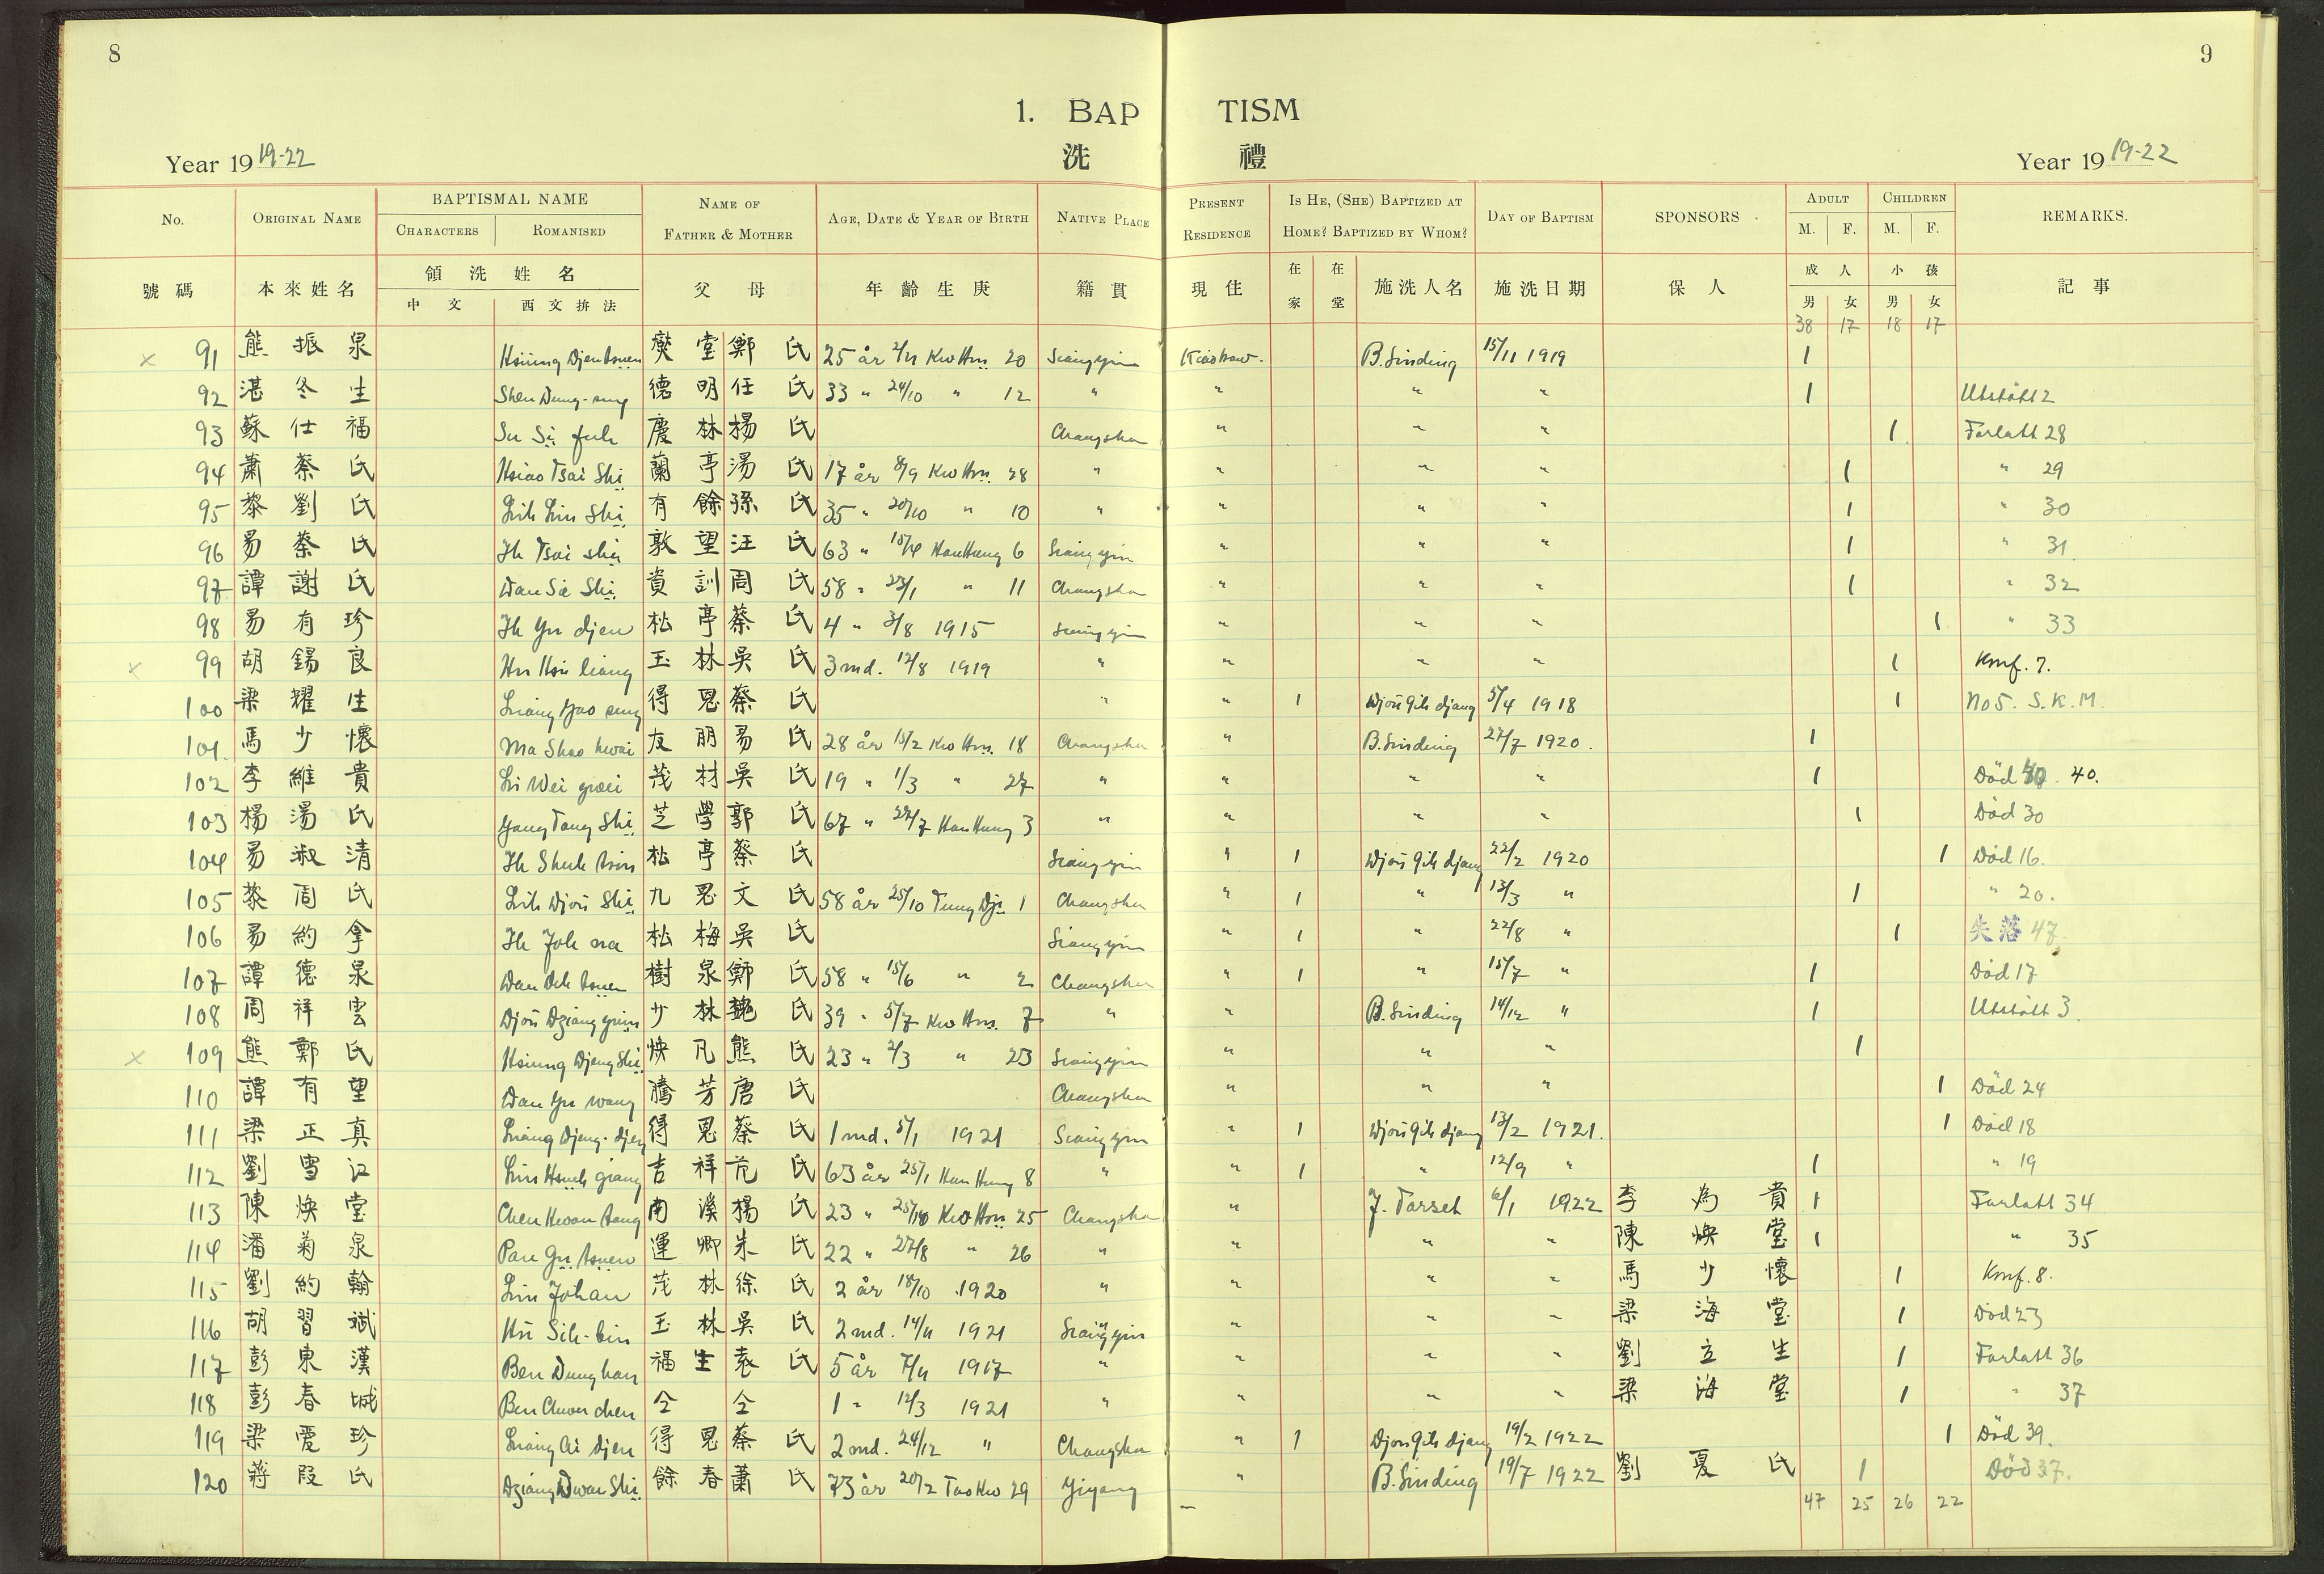 8
9
1. BAP TISM
洗 禮
Year 19 19-22
Year 19 19-22
No. ORIGINAL NAME BAPTISMAL NAME NAME OF FATHER & MOTHER AGE, DATE & YEAR OF BIRTH NATIVE PLACE PRESENT RESIDENCE IS HE, (SHE) BAPTIZED AT HOME? BAPTIZED BY WHOM? DAY OF BAPTISM SPONSORS ADULT CHILDREN REMARKS.
CHARACTERS ROMANISED M. F. M. F.
號碼 本來姓名 領洗姓名 父母 年齡生庚 籍貫 現住 在家 在堂 施洗人名 施洗日期 保人 成人 小孩 記事
中文 西文拚法 男 女 男 女
38 17 18 17
x 91 熊振泉 Hsiung Djen tsuen 堂鄭氏 25 år 2/11 Kwo Hsu. 20 Siangyin Kiaotow. B. Sinding 15/11 1919 1
92 湛冬生 Shen Dung-seng 德明任氏 33 " 24/10 " 12 " " " " 1 Utstött 2
93 蘇仕福 Su Si fuh 慶林楊氏 Changsha " " " 1 Forlatt 28
94 蕭蔡氏 Hsiao Tsai Shi 蘭亭湯氏 17 år 8/9 Kwo Hsu. 28 " " " " 1 " 29
95 黎劉氏 Lih Liu Shi 有餘孫氏 35 " 20/10 " 10 " " " " 1 " 30
96 易蔡氏 Ih Tsai shi 敦望汪氏 63 " 15/4 Han Hung 6 Siangyin " " " 1 " 31
97 譚謝氏 Dan Sie Shi 資訓周氏 58 " 23/1 " 11 Changsha " " " 1 " 32
98 易有珍 Ih Yu djen 松亭蔡氏 4 " 3/8 1915 Siangyin " " " 1 " 33
x 99 胡錫良 Hu Hsi liang 玉林吳氏 3 md. 12/8 1919 " " " " 1 Konf. 7.
100 梁耀生 Liang Yao seng 得恩蔡氏 " " 1 Djou Gih djang 5/4 1918 1 No 5. S.K.M.
101. 馬少懷 Ma Shao hwai 友朋易氏 28 år 15/2 Kwo Hsu. 18 Changsha " B. Sinding 27/7 1920. 1
102 李維貴 Li Wei gwei 茂材吳氏 19 " 1/3 " 27 " " " " 1 Död 40.
103 楊湯氏 Yang Tang Shi 芝學郭氏 67 " 22/7 Han Hung 3 " " " " 1 Död 30
104 易淑清 Ih Shuh tsin 松亭蔡氏 Siangyin " 1 Djou Gih djang 22/2 1920 1 Död 16.
105 黎周氏 Lih Djou Shi 九思文氏 58 år 25/10 Tung Dji 1 Changsha " 1 " 13/3 " 1 " 20.
106 易約拿 Ih Joh na 松梅吳氏 Siangyin " 1 " 22/8 " 1 失落 47.
107 譚德泉 Dan Deh tsuen 樹泉鄭氏 58 " 15/6 " 2 Changsha " 1 " 15/7 " 1 Död 17
108 周祥雲 Djou Dziang yuin 少林魏氏 39 " 5/7 Kwo Hsu. 7 " " B. Sinding 14/12 " 1 Utstött 3.
x 109 熊鄭氏 Hsiung Djeng Shi 煥凡熊氏 23 " 2/3 " 23 Siangyin " " " 1
110 譚有望 Dan Yu wang 騰芳唐氏 Changsha " " " 1 Död 24
111 梁正真 Liang Djeng-djen 得恩蔡氏 1 md. 5/1 1921 Siangyin " 1 Djou Gih djang 13/2 1921. 1 Död 18
112 劉雪江 Liu Hsueh giang 吉祥范氏 63 år 25/1 Han Hung 8 " " 1 " 12/9 " 1 " 19
113 陳煥堂 Chen Hwan tang 南溪楊氏 23 " 25/10 Kwo Hsu 25 Changsha " J. Tarset 6/1 1922 李為貴 1 Forlatt 34
114 潘菊泉 Pan Gu tsuen 運卿朱氏 22 " 27/8 " 26 " " " " 陳煥堂 1 " 35
115 劉約翰 Liu Johan 茂林徐氏 2 år 18/10 1920 " " " " 馬少懷 1 Konf. 8.
116 胡習斌 Hu Sih-bin 玉林吳氏 2 md. 14/11 1921 Siangyin " " " 梁海堂 1 Död 23
117 彭東漢 Ben Dung han 福生袁氏 5 år 7/11 1917 " " " " 劉立生 1 Forlatt 36
118 彭春城 Ben Chuen chen 仝 仝 1 " 12/3 1921 " " " " 梁海堂 1 " 37
119 梁愛珍 Liang Ai djen 得恩蔡氏 2 md. 24/12 " Changsha " 1 Djou Gih djang 19/2 1922 1 Död 39.
120 蔣段氏 Dziang Dwan Shi 餘春蕭氏 73 år 20/2 Tao Kwo 29 Yiyang " B. Sinding 19/7 1922 劉夏氏 1 Död 37.
47 25 26 22